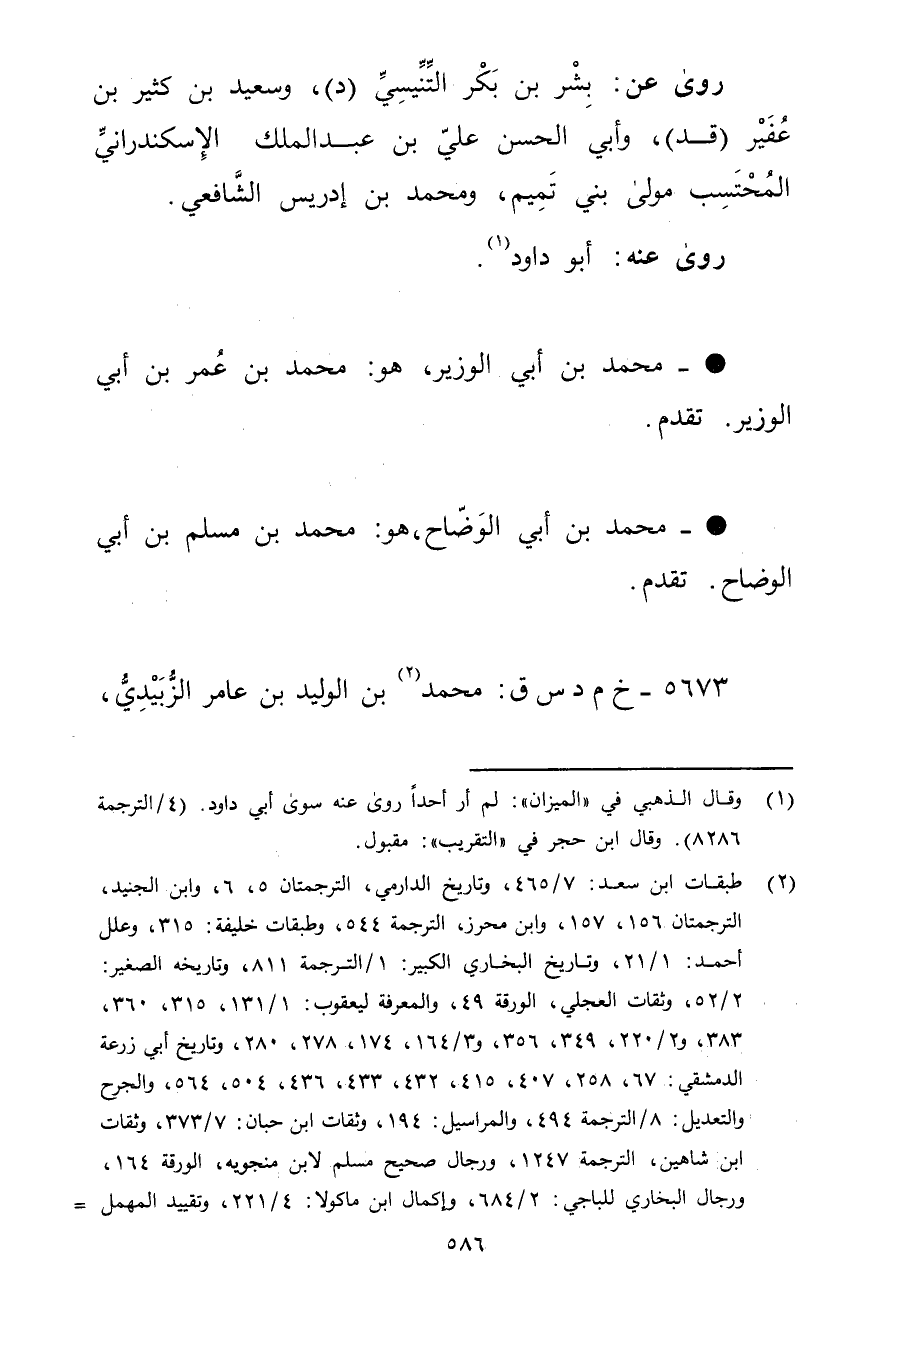 روىٰ عن: بِشْر بن بَكْر التِّنِّيسِيِّ (د)، وسعيد بن كثير بن
عُفَيْر (قــد)، وأبي الحسن عليّ بن عبــدالملك الإِسكندرانيِّ
المُحْتَسِب مولىٰ بني تَمِيم، ومحمد بن إدريس الشَّافعي.
روىٰ عنه: أبو داود(١).
● ـ محمد بن أبي الوزير، هو: محمد بن عُمر بن أبي
الوزير. تقدم.
● ـ محمد بن أبي الوَضَّاح،هو: محمد بن مسلم بن أبي
الوضاح. تقدم.
٥٦٧٣ ـ خ م د س ق: محمد(٢) بن الوليد بن عامر الزُّبَيْدِيُّ،
(١) وقال الذهبي في «الميزان»: لم أر أحداً روىٰ عنه سوىٰ أبي داود. (٤/الترجمة
٨٢٨٦). وقال ابن حجر في «التقريب»: مقبول.
(٢) طبقات ابن سعد: ٧/ ٤٦٥، وتاريخ الدارمي، الترجمتان ٥، ٦، وابن الجنيد،
الترجمتان ١٥٦، ١٥٧، وابن محرز، الترجمة ٥٤٤، وطبقات خليفة: ٣١٥، وعلل
أحمد: ١/ ٢١، وتاريخ البخاري الكبير: ١/الترجمة ٨١١، وتاريخه الصغير:
٢/ ٥٢، وثقات العجلي، الورقة ٤٩، والمعرفة ليعقوب: ١/ ١٣١، ٣١٥، ٣٦٠،
٣٨٣، و٢/ ٢٢٠، ٣٤٩، ٣٥٦، و٣/ ١٦٤، ١٧٤، ٢٧٨، ٢٨٠، وتاريخ أبي زرعة
الدمشقي: ٦٧، ٢٥٨، ٤٠٧، ٤١٥، ٤٣٢، ٤٣٣، ٤٣٦، ٥٠٤، ٥٦٤، والجرح
والتعديل: ٨/ الترجمة ٤٩٤، والمراسيل: ١٩٤، وثقات ابن حبان: ٧/ ٣٧٣، وثقات
ابن شاهين، الترجمة ١٢٤٧، ورجال صحيح مسلم لابن منجويه، الورقة ١٦٤،
ورجال البخاري للباجي: ٢/ ٦٨٤، وإكمال ابن ماكولا: ٤/ ٢٢١، وتقييد المهمل =
٥٨٦